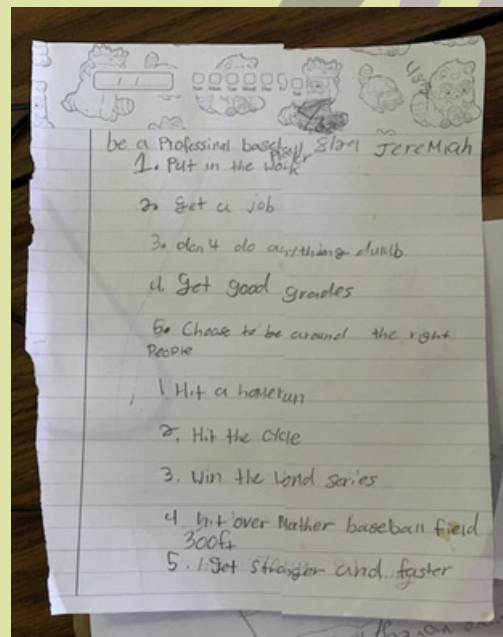 Sun Mon Tue Wed Thu
be a Professinal baseball Player 8/29 JereMiah
1. Put in the work
2. Get a job
3. don4 do anything dumb
4. Get good grades
5. Choose to be around the right
People
1 Hit a homerun
2. Hit the cycle
3. Win the World series
4 hit over Mather baseball field
300ft
5. Get Stronger and faster